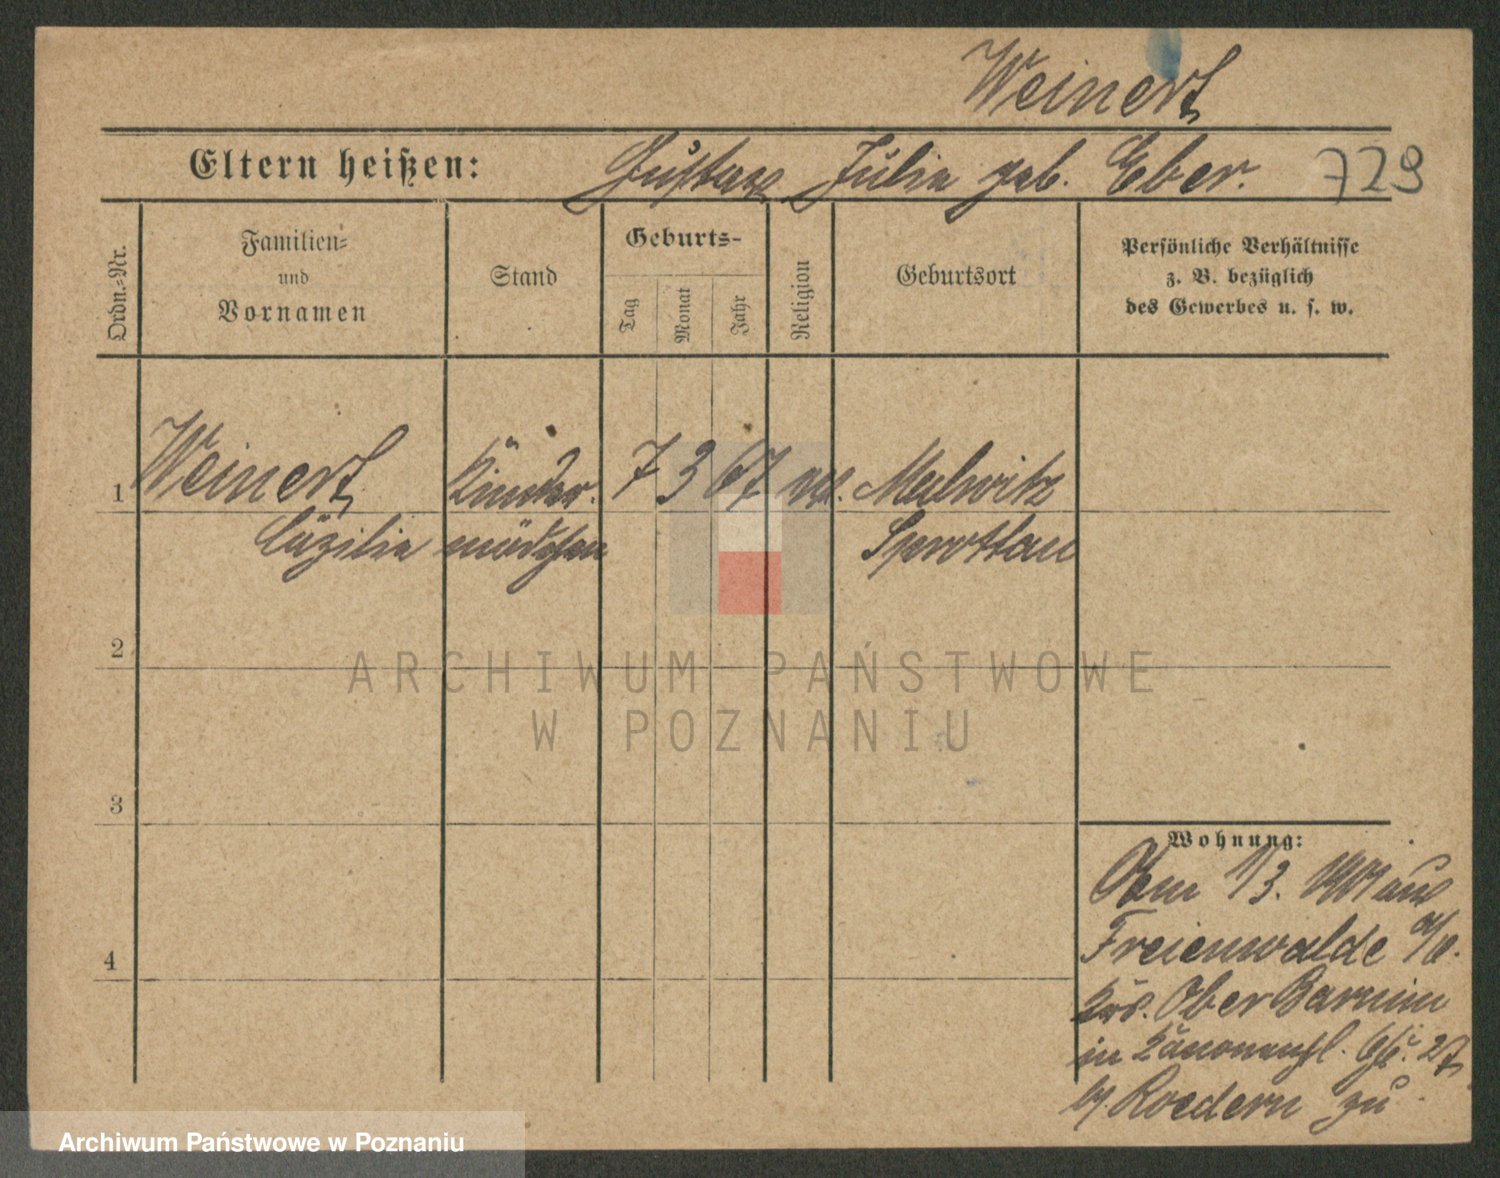 Weinert
Eltern heißen: Gustav Julia geb. Eber. 729
Ordn.-Nr.
Familien-
und
Vornamen
Stand
Geburts-
Tag
Monat
Jahr
Religion
Geburtsort
Persönliche Verhältnisse
z. B. bezüglich
des Gewerbes u. s. w.
1 Weinert Kinder- 7 3 67 Mulwitz
Cäzilia mädchen Sprottau
2
3
4
Wohnung:
1/3. aus
Freienwalde a/O.
Krs. Ober Barnim
in 27
Roedern zu
ARCHIWUM PAŃSTWOWE
W POZNANIU
Archiwum Państwowe w Poznaniu